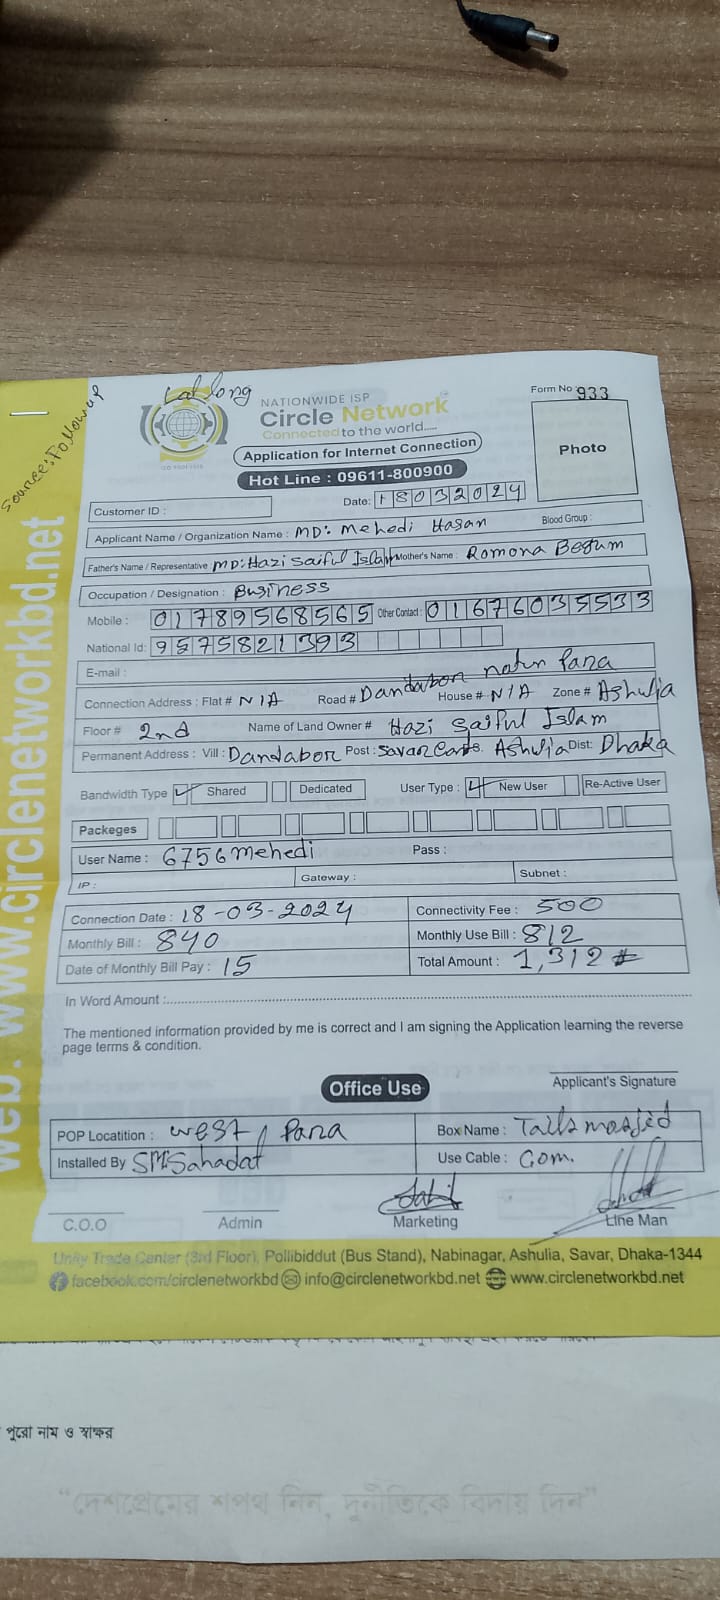 Lat long
Source: Followup
NATIONWIDE ISP
Form No : 933
Circle Network
Connected to the world.....
ISO 9001:2015
Application for Internet Connection
Photo
Hot Line : 09611-800900
Date: 18032024
Customer ID :
Applicant Name / Organization Name : MD: Mehedi Hasan Blood Group :
Father's Name / Representative MD: Hazi Saiful Islam Mother's Name : Romona Begum
Occupation / Designation : Business
Mobile : 01789568565 Other Contact : 01676035533
National Id: 9575821393
E-mail :
Connection Address : Flat # N/A Road # Dandabon natun Para House # N/A Zone # Ashulia
Floor # 2nd Name of Land Owner # Hazi Saiful Islam
Permanent Address : Vill : Dandabor Post : Savar Cant. Ashulia Dist: Dhaka
Bandwidth Type Shared Dedicated User Type : New User Re-Active User
Packeges
User Name : 6756mehedi Pass :
IP : Gateway : Subnet :
Connection Date : 18-03-2024 Connectivity Fee : 500
Monthly Bill : 840 Monthly Use Bill : 812
Date of Monthly Bill Pay : 15 Total Amount : 1,312
In Word Amount :
The mentioned information provided by me is correct and I am signing the Application learning the reverse
page terms & condition.
Applicant's Signature
Office Use
POP Locatition : West Para Box Name : Tails masjid
Installed By SM: Sahadat Use Cable : Com.
C.O.O Admin Marketing Line Man
Unity Trade Center (3rd Floor), Pollibiddut (Bus Stand), Nabinagar, Ashulia, Savar, Dhaka-1344
facebook.com/circlenetworkbd info@circlenetworkbd.net www.circlenetworkbd.net
web: www.circlenetworkbd.net
পুরো নাম ও স্বাক্ষর
“দেশপ্রেমের শপথ নিন, দুর্নীতিকে বিদায় দিন”